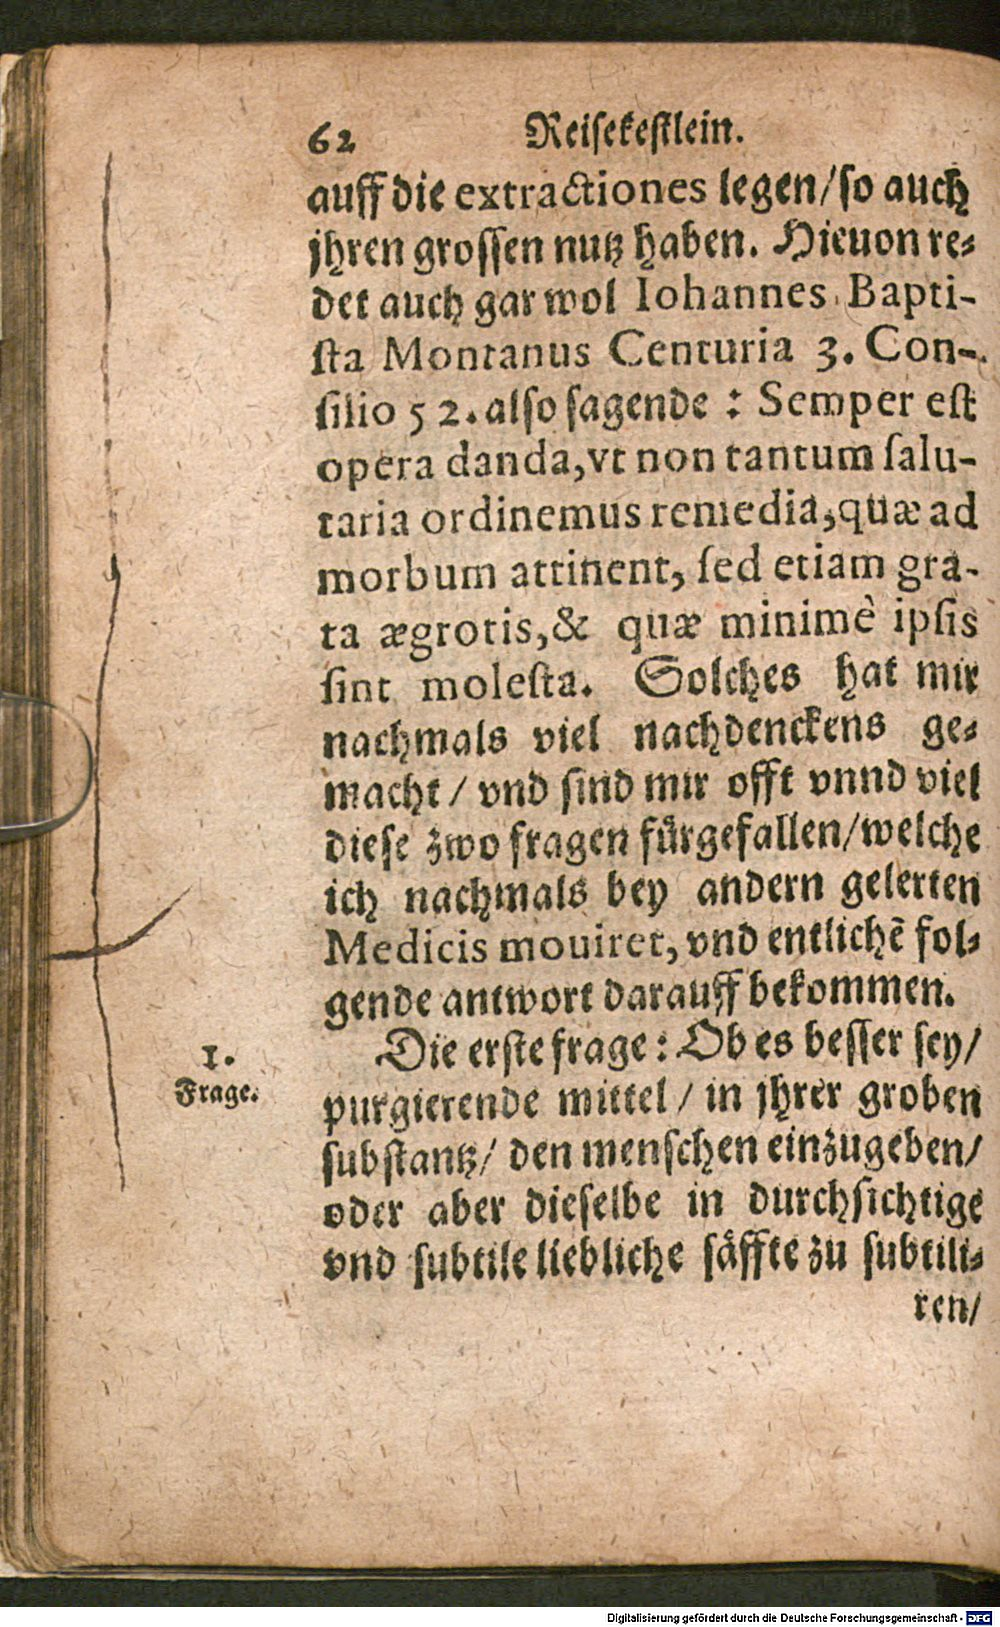 62 Reisekestlein.
auff die extractiones legen/so auch
jhren grossen nutz haben. Hieuon re-
det auch gar wol Iohannes Bapti-
sta Montanus Centuria 3. Con-
silio 52. also sagende: Semper est
opera danda, vt non tantum salu-
taria ordinemus remedia, quæ ad
morbum attinent, sed etiam gra-
ta ægrotis, & quæ minimè ipsis
sint molesta. Solches hat mir
nachmals viel nachdenckens ge-
macht / vnd sind mir offt vnnd viel
diese zwo fragen fürgefallen/welche
ich nachmals bey andern gelerten
Medicis mouiret, vnd entlichẽ fol-
gende antwort darauff bekommen.
1.
Frage.
Die erste frage: Ob es besser sey/
purgierende mittel / in jhrer groben
substantz/ den menschen einzugeben/
oder aber dieselbe in durchsichtige
vnd subtile liebliche säffte zu subtili-
ren/
Digitalisierung gefördert durch die Deutsche Forschungsgemeinschaft - DFG